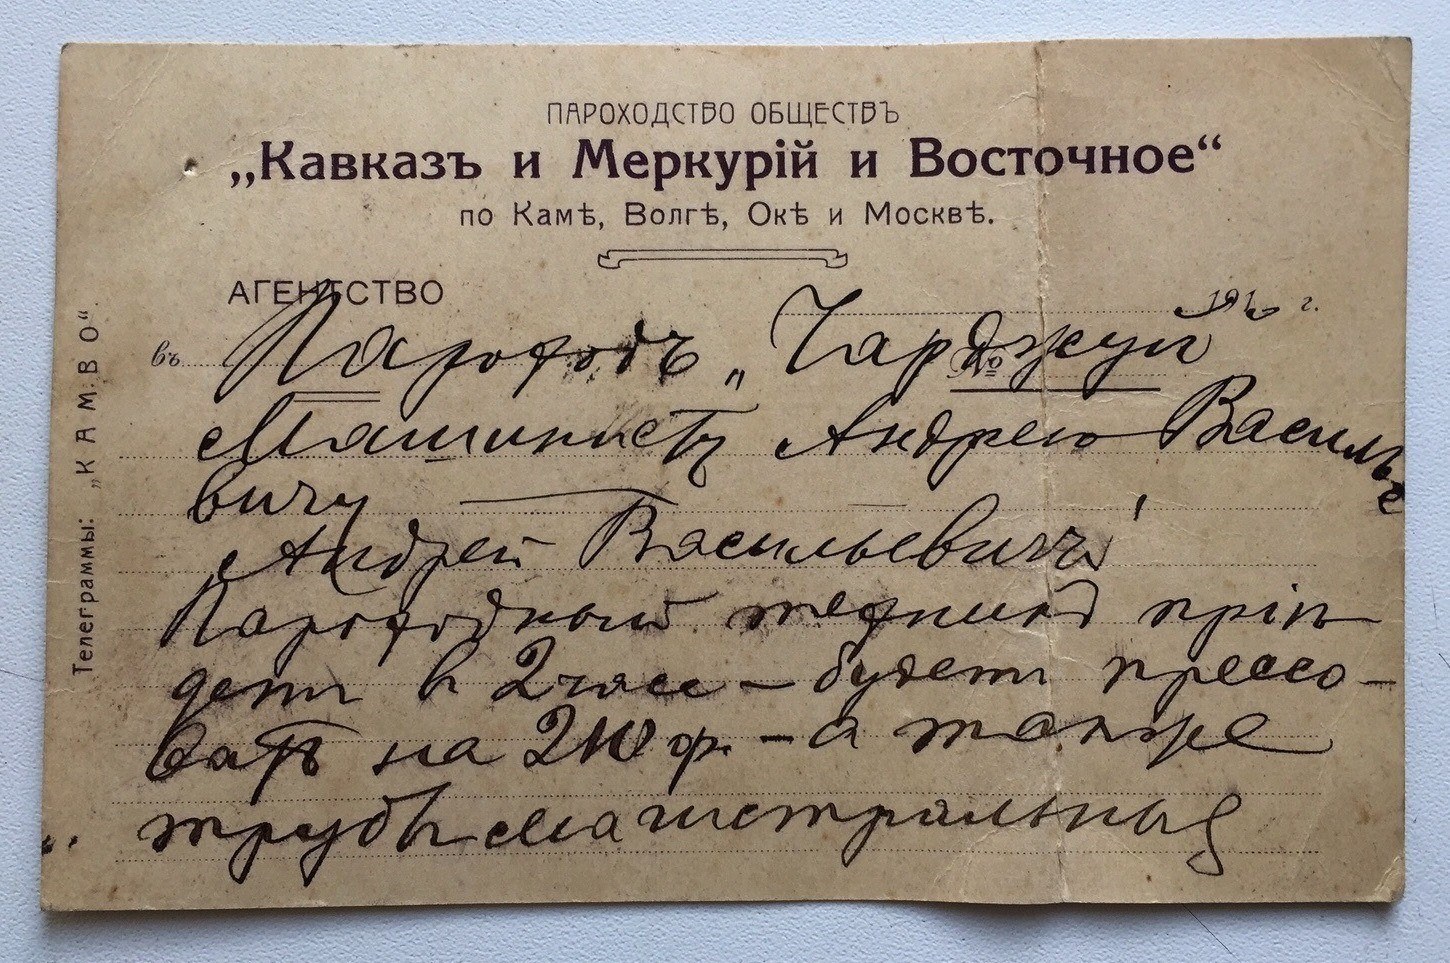 ПАРОХОДСТВО ОБЩЕСТВЪ
„Кавказъ и Меркурій и Восточное“
по Камѣ, Волгѣ, Окѣ и Москвѣ.
АГЕНТСТВО
191 г.
въ Пароходъ „Чарджуй
№
Машинисту Андрею Василье
вичу
Андрей Васильевичъ!
Пароходный техникъ прій
детъ в 2 часа – будетъ прессо-
вать на 210 ф. – а также
трубы магистральныя
Телеграммы: „КАМВО“.